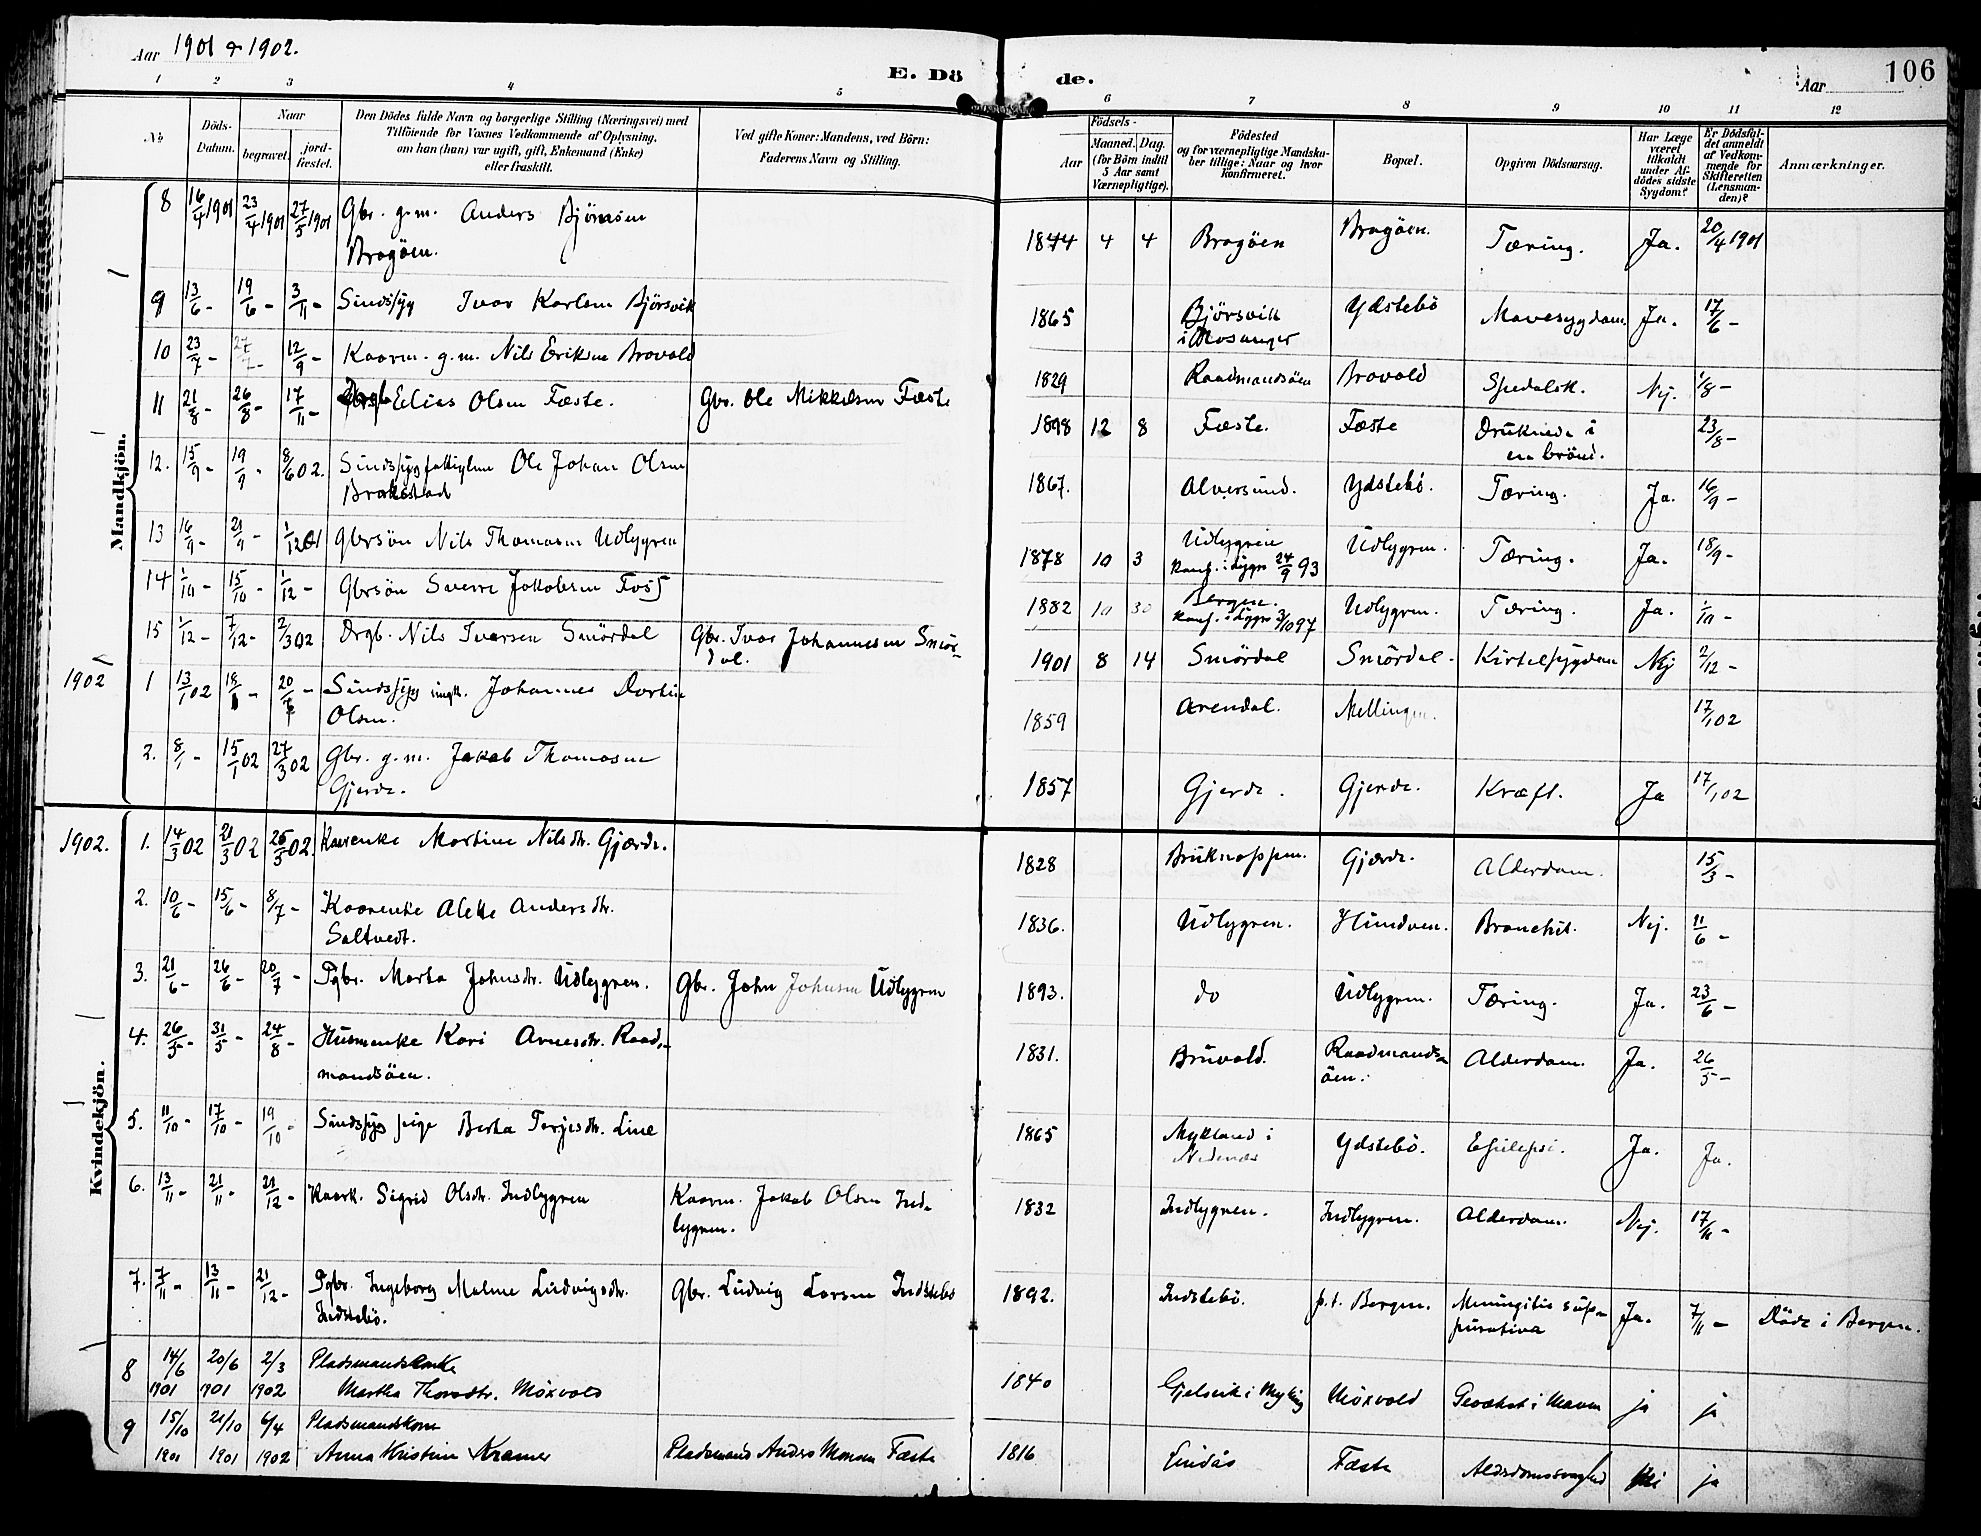 Aar 1901 & 1902.
E. Dö
de.
Aar
106
1 2 3 4 5 6 7 8 9 10 11 12
No
Döds-
Datum.
Naar
begravet.
jord-
fæstet.
Den Dödes fulde Navn og borgerlige Stilling (Næringsvei) med
Tilföiende for Voxnes Vedkommende af Oplysning,
om han (hun) var ugift, gift, Enkemand (Enke)
eller fraskilt.
Ved gifte Koner: Mandens, ved Börn:
Faderens Navn og Stilling.
Födsels-
Aar
Maaned. Dag.
(for Börn indtil
5 Aar samt
Værnepligtige).
Födested
og for værnepligtige Mandska-
ber tillige: Naar og hvor
Konfirmeret.
Bopæl.
Opgiven Dödsaarsag.
Har Læge
været
tilkaldt
under Af-
dödes sidste
Sygdom?
Er Dödsfal-
det anmeldt
af Vedkom-
mende for
Skifteretten
(Lensman-
den)?
Anmærkninger.
Mandkjön.
8 16/4 1901 23/4 1901 27/5 1901 Gbr. g.m. Anders Bjørnsen 1844 4 4 Bragöen Bragöen. Tæring. Ja. 20/4 1901
Bragöen.
9 13/6 - 19/6 - 3/11 - Sindssyg Ivar Karlsen Bjørsvik 1865 Bjørsvik Ydstebö Mavesygdom. Ja. 17/6 -
i Mosanger
10 23/7 - 27/7 - 12/9 - Kaarm. g.m. Nils Eriksen Brovold 1829 Raadmandsöen Brovold Spedalsk. Nej. 1/8 -
11 21/8 - 26/8 - 17/11 - Elias Olsen Fæste. Gbr. Ole Mikkelsen Fæste 1898 12 8 Fæste. Fæste Druknede i 23/8 -
en brönd.
12. 15/9 - 19/9 - 8/6 02. Sindssyg fattiglem Ole Johan Olsen 1867. Alversund. Ydstebö. Tæring. Ja. 16/9 -
Brakstad
13 16/9 - 21/9 - 1/12 01 Gbrsön Nils Thomasen Udlygren 1878 10 3 Udlygren Udlygren. Tæring. Ja. 18/9 -
Konf. i Lygre 24/9 93
14 1/10 - 15/10 - 1/12 - Gbrsön Sverre Jakobsen Foss 1882 10 30 Bergen. Udlygren. Tæring. Ja. 1/10 -
Konf. i Lygre 3/10 97
15 1/12 - 7/12 - 2/3 02 Drgb. Nils Ivarsen Smördal Gbr. Ivar Johannesen Smör- 1901 8 14 Smördal Smördal. Kirtelsygdom Nej 2/12 -
dal.
1902 1 13/1 02 18/1 - 20/7 - Sindssyg Johannes Dortin 1859 Arendal. Mellingen. 17/1 02
Olsen.
2. 8/1 - 15/1 02 27/3 02 Gbr. g.m. Jakob Thomasen 1857 Gjerde. Gjerde. Kræft. Ja 17/1 02
Gjerde.
Kvindekjön.
1902. 1. 14/3 02 21/3 02 25/5 02. Kaarenke Martine Nilsdtr. Gjærde. 1828 Bruknappen. Gjærde. Alderdom. 15/3 -
2. 10/6 - 15/6 - 8/7 - Kaarenke Alette Andersdtr. 1836. Udlygren. Hundven. Bronchit. Nej. 11/6 -
Saltvedt.
3. 21/6 - 26/6 - 20/7 - Pgbr. Marta Johnsdtr. Udlygren. Gbr. John Johnsen Udlygren 1893. do Udlygren. Tæring. Ja. 23/6 -
4. 26/5 - 31/5 - 24/8 - Husmenke Kari Arnesdtr. Raad- 1831. Bruvold. Raadmands- Alderdom. Ja. 26/5 -
mandsöen. öen.
5. 11/10 - 17/10 - 19/10 - Sindssyg pige Berta Terjesdtr. Line 1865 Mykland i Ydstebö. Epilepsi. Ja. Ja.
Nedenæs
6. 13/11 - 21/11 - 21/12 - Kaark. Sigrid Olsdtr. Indlygren Kaarm. Jakob Olsen Ind- 1832 Indlygren. Indlygren. Alderdom. Nej. 17/11 -
lygren.
7. 7/11 - 13/11 - 21/12 - Pgbr. Ingeborg Malene Ludvigsdtr. Gbr. Ludvig Larsen Indstebö 1892. Indstebö. p.t. Bergen. Meningitis sup- Ja. 7/11 - Döde i Bergen.
Indstebö. purativa
8 14/6 20/6 2/3 Pladsmandsenke
1901 1901 1902 Martha Thorsdtr. Moxvold 1840 Gjelsvik i Myking Moxvold Gevækst i Maven ja ja
9 15/10 21/10 6/4 Pladsmandskone
1901 1901 1902 Anna Kristine Kramer Pladsmand Anders Monsen Fæste 1816 Lindås Fæste Alderdomssvaghed nei ja